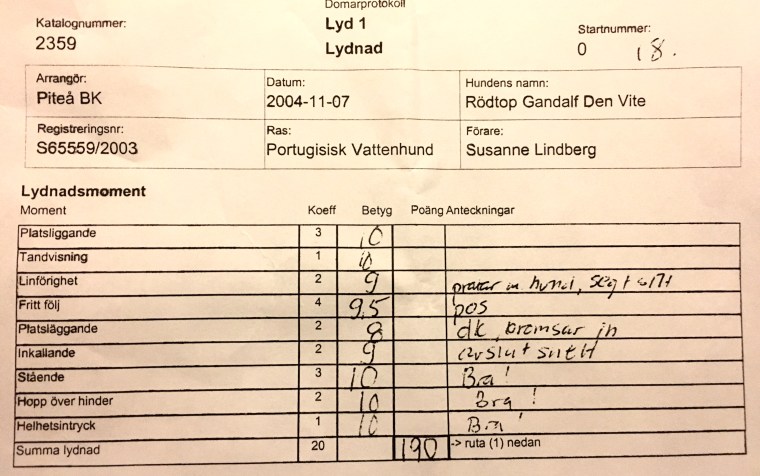 Domarprotokoll
Katalognummer: Lyd 1 Startnummer:
2359 Lydnad 0 18.
Arrangör: Datum: Hundens namn:
Piteå BK 2004-11-07 Rödtop Gandalf Den Vite
Registreringsnr: Ras: Förare:
S65559/2003 Portugisisk Vattenhund Susanne Lindberg
Lydnadsmoment
Moment Koeff Betyg Poäng Anteckningar
Platsliggande 3 10
Tandvisning 1 10
Linförighet 2 9 hund, segt sitt
Fritt följ 4 9,5 pos
Platsläggande 2 8 dk, bromsar in
Inkallande 2 9 avslut snett
Stående 3 10 Bra!
Hopp över hinder 2 10 Bra!
Helhetsintryck 1 10 Bra!
Summa lydnad 20 190 -> ruta (1) nedan